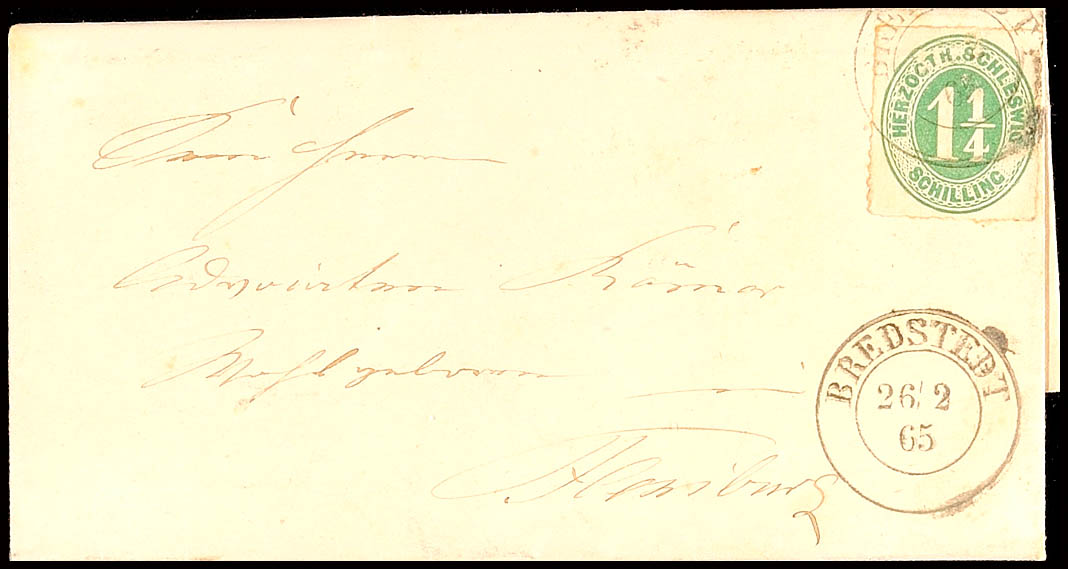 HERZOGTH. SCHLESWIG
1 1/4
SCHILLING
Herrn
Advocaten Römer
Wohlgeboren
in
Flensburg
BREDSTEDT
26/2
65